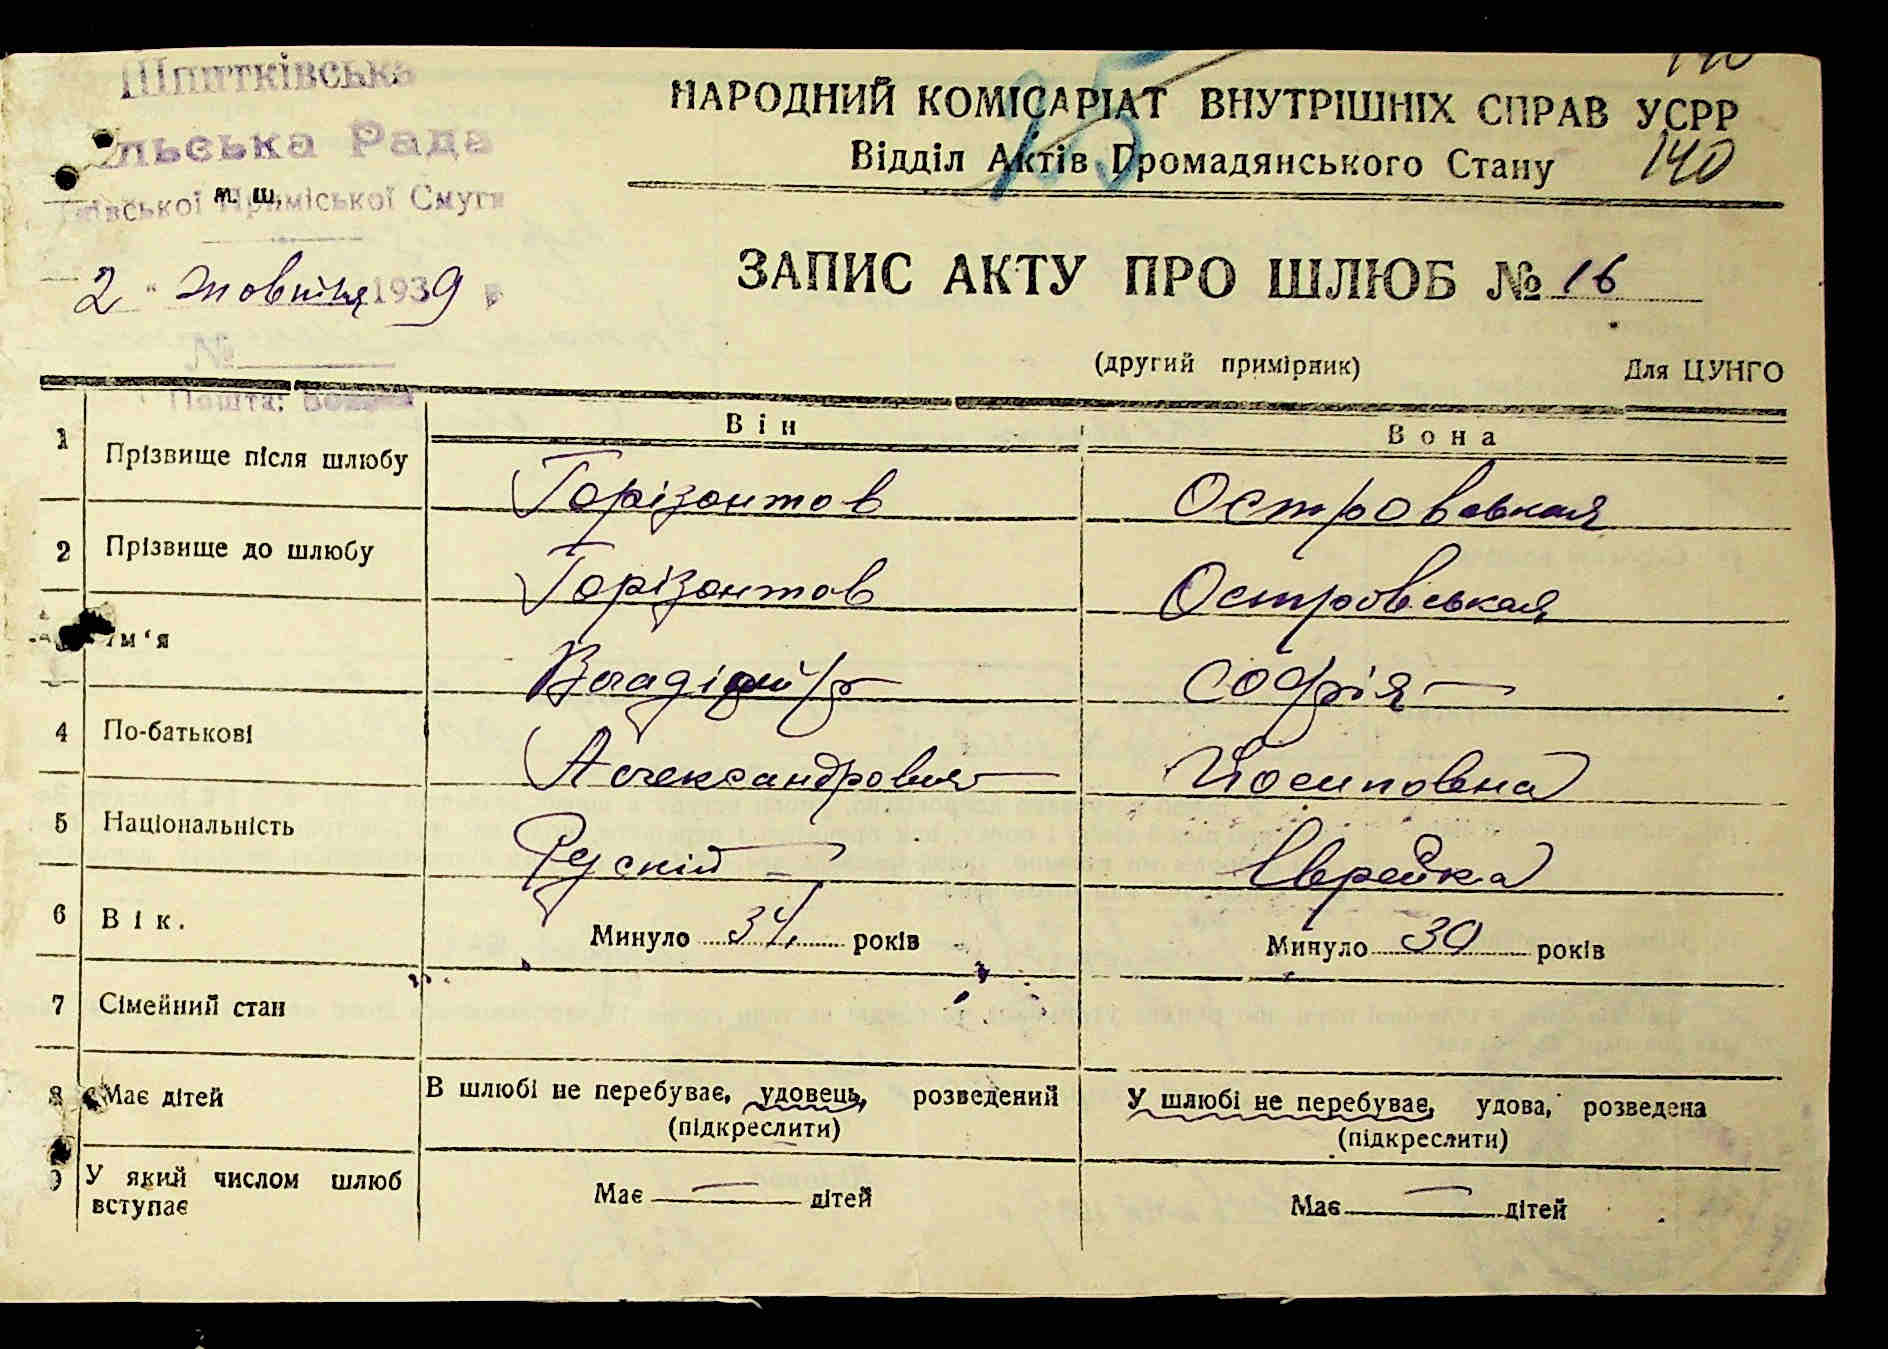 Шпитківська
льська Рада
м. ш.
ївської Приміської Смуги
2 " жовтня 1939 р
№
Пошта:
НАРОДНИЙ КОМІСАРІАТ ВНУТРІШНІХ СПРАВ УСРР
Відділ Актів Громадянського Стану
140
ЗАПИС АКТУ ПРО ШЛЮБ № 16
(другий примірник) Для ЦУНГО
Він Вона
1 Прізвище після шлюбу Горізонтов Островская
2 Прізвище до шлюбу Горізонтов Островськая
Ім‘я Владімір Софія
4 По-батькові Александрович Йосиповна
5 Національність Рускій Єврейка
6 Вік. Минуло 34 років Минуло 30 років
7 Сімейний стан
8 Має дітей В шлюбі не перебуває, удовець, розведений У шлюбі не перебуває, удова, розведена
(підкреслити) (підкреслити)
9 У який числом шлюб вступає Має — дітей Має — дітей